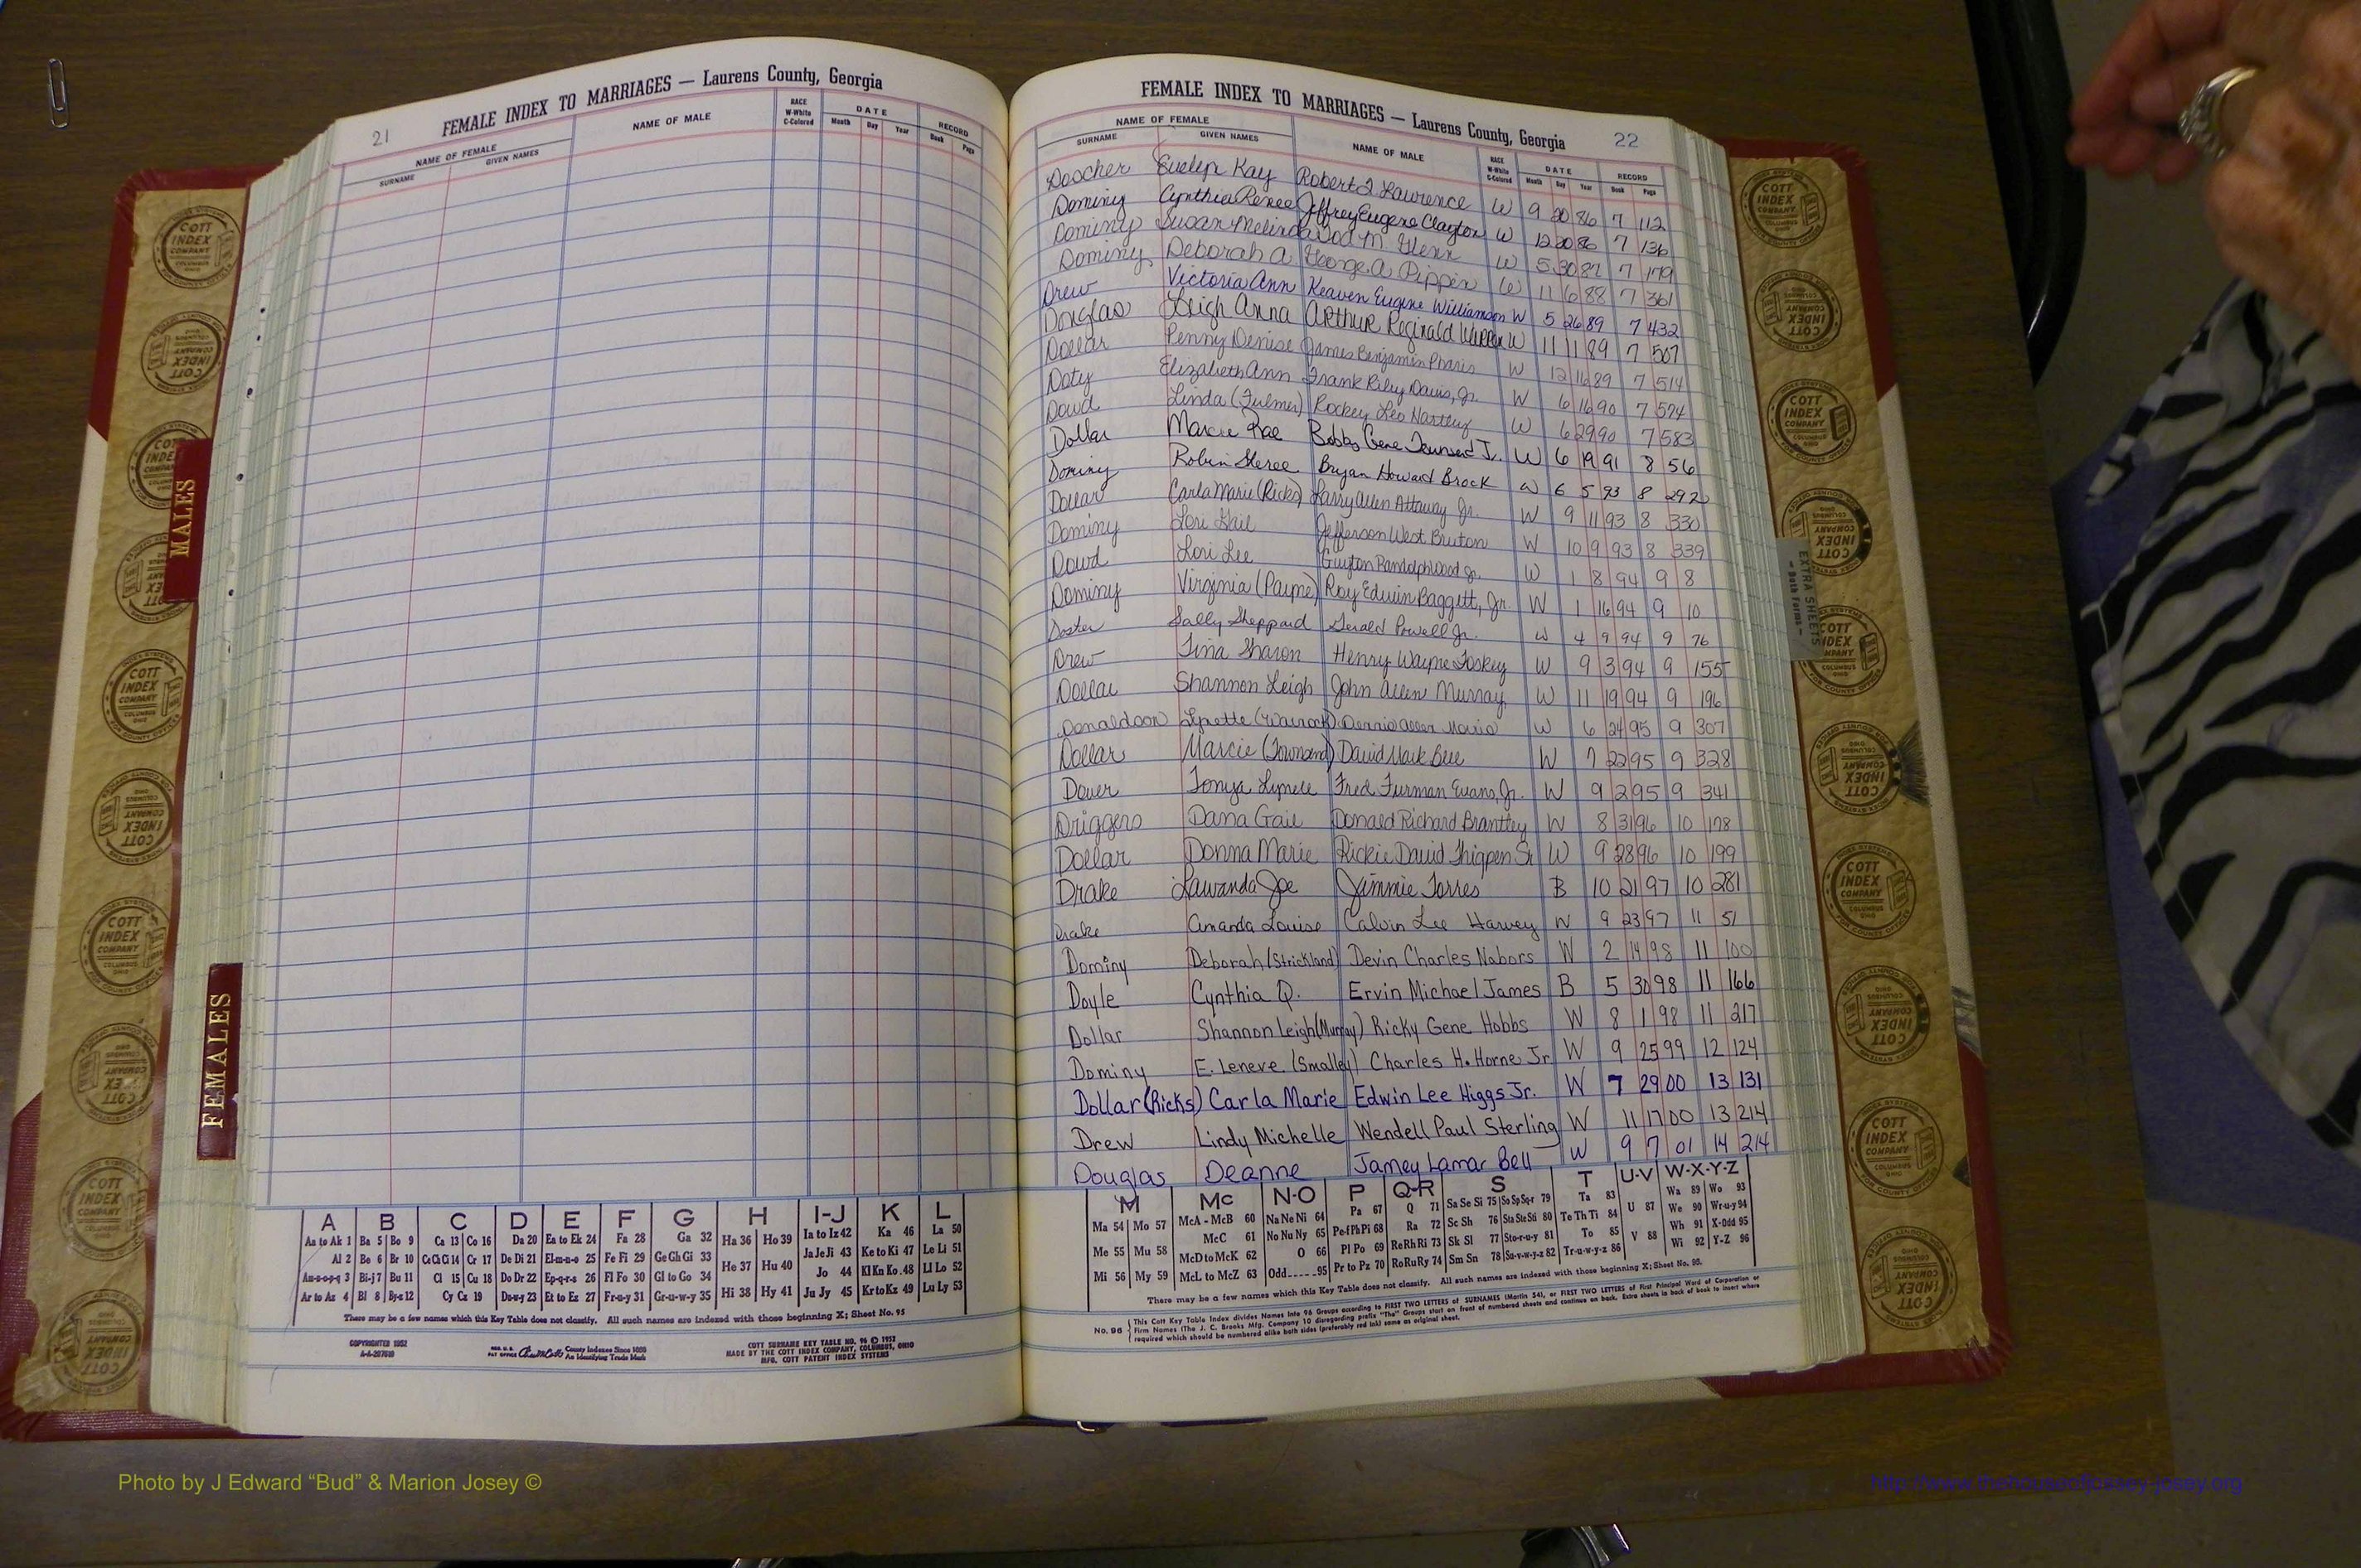 21
FEMALE INDEX TO MARRIAGES — Laurens County, Georgia
NAME OF FEMALE
SURNAME GIVEN NAMES
NAME OF MALE
RACE
W-White
C-Colored
DATE
Month Day Year
RECORD
Book Page
FEMALE INDEX TO MARRIAGES — Laurens County, Georgia
22
NAME OF FEMALE
SURNAME GIVEN NAMES
NAME OF MALE
RACE
W-White
C-Colored
DATE
Month Day Year
RECORD
Book Page
Evelyn Kay Robert I Lawrence W 9 20 86 7 112
Dominy Cynthia Renee Jeffrey Eugene Clayton W 12 20 86 7 136
Dominy Susan Melinda M. Glenn W 5 30 87 7 179
Dominy Deborah A George A Pippin W 11 6 88 7 361
Drew Victoria Ann Keaven Eugene Williamson W 5 26 89 7 432
Douglas Leigh Anna Arthur Reginald W 11 11 89 7 507
Dollar Penny Denise James Benjamin Pharis W 12 16 89 7 514
Doty Elizabeth Ann Frank Riley Davis, Jr. W 6 16 90 7 574
Dowd Linda (Fulmer) Rockey Leo W 6 29 90 7 583
Dollar Marcie Rae Bobby Gene Townsend Jr. W 6 19 91 8 56
Dominy Robin Sheree Bryan Howard Brock W 6 5 93 8 292
Dollar Carla Marie (Ricks) Larry Allen Attaway Jr. W 9 11 93 8 330
Dominy Lori Gail Jefferson West Bruton W 10 9 93 8 339
Dowd Lori Lee Guyton Randolph Wood Jr. W 1 8 94 9 8
Dominy Virginia (Payne) Roy Edwin Baggett, Jr. W 1 16 94 9 10
Doster Sally Sheppard Gerald Powell Jr. W 4 9 94 9 76
Drew Tina Sharon Henry Wayne Toskey W 9 3 94 9 155
Dollar Shannon Leigh John Allen Murray W 11 19 94 9 196
Donaldson Lynette (Warnock) W 6 24 95 9 307
Dollar Marcie (Townsend) David Mark Bell W 7 22 95 9 328
Dover Tonya Lynell Fred Furman Evans, Jr. W 9 2 95 9 341
Driggers Dana Gail Donald Richard Brantley W 8 31 96 10 178
Dollar Donna Marie Rickie David Thigpen Sr W 9 28 96 10 199
Drake Lawanda Joe Jimmie Torres B 10 21 97 10 281
Drake Amanda Louise Calvin Lee Harvey W 9 23 97 11 51
Dominy Deborah (Strickland) Devin Charles Nabors W 2 14 98 11 100
Doyle Cynthia Q. Ervin Michael James B 5 30 98 11 166
Dollar Shannon Leigh (Murray) Ricky Gene Hobbs W 8 1 98 11 217
Dominy E. Leneve (Smalley) Charles H. Horne Jr W 9 25 99 12 124
Dollar (Ricks) Carla Marie Edwin Lee Higgs Jr. W 7 29 00 13 131
Drew Lindy Michelle Wendell Paul Sterling W 11 17 00 13 214
Douglas Deanne Jamey Lamar Bell W 9 7 01 14 214
A B C D E F G H I-J K L
Aa to Ak 1 Ba 5 Bo 9 Ca 13 Co 16 Da 20 Ea to Ek 24 Fa 28 Ga 32 Ha 36 Ho 39 Ia to Iz 42 Ka 46 La 50
Al 2 Be 6 Br 10 Ce Ch Ci 14 Cr 17 De Di 21 El-m-n-o 25 Fe Fi 29 Ge Gh Gi 33 He 37 Hu 40 Ja Je Ji 43 Ke to Ki 47 Le Li 51
An-s-o-p-q 3 Bi-j 7 Bu 11 Cl 15 Cu 18 Do Dr 22 Ep-q-r-s 26 Fl Fo 30 Gl to Go 34 Jo 44 Kl Kn Ko 48 Ll Lo 52
Ar to Az 4 Bl 8 By-z 12 Cy Cz 19 Du-w-y 23 Et to Ez 27 Fr-u-y 31 Gr-u-w-y 35 Hi 38 Hy 41 Ju Jy 45 Kr to Kz 49 Lu Ly 53
There may be a few names which this Key Table does not classify. All such names are indexed with those beginning X; Sheet No. 95
COPYRIGHTED 1952
County Indexes Since 1888
An Identifying Trade Mark
COTT SURNAME KEY TABLE NO. 96 © 1957
MADE BY THE COTT INDEX COMPANY, COLUMBUS, OHIO
MFG. COTT PATENT INDEX SYSTEMS
M Mc N-O P Q-R S T U-V W-X-Y-Z
Ma 54 Mo 57 McA - McB 60 Na Ne Ni 64 Pa 67 Q 71 Sa Se Si 75 So Sp Sq-r 79 Ta 83 U 87 Wa 89 Wo 93
Me 55 Mu 58 McC 61 No Nu Ny 65 Pe-f Ph Pi 68 Ra 72 Sc Sh 76 Sta Ste Sti 80 Te Th Ti 84 We 90 Wr-u-y 94
McD to McK 62 O 66 Pl Po 69 Re Rh Ri 73 Sk Sl 77 Sto-r-u-y 81 To 85 V 88 Wh 91 X-Odd 95
Mi 56 My 59 McL to McZ 63 Odd 95 Pr to Pz 70 Ro Ru Ry 74 Sm Sn 78 Su-v-w-y-z 82 Tr-u-w-y-z 86 Wi 92 Y-Z 96
There may be a few names which this Key Table does not classify. All such names are indexed with those beginning X; Sheet No. 95.
No. 96
This Cott Key Table Index divides Names into 96 Groups according to FIRST TWO LETTERS of SURNAMES (Martin 54), or FIRST TWO LETTERS of First Principal Word of Corporation or
Firm Names (The J. C. Brooks Mfg. Company 10 disregarding prefix "The" Groups start on front of numbered sheets and continue on back. Extra sheets in back of book to insert where
required which should be numbered alike both sides (preferably red ink) same as original sheet.
MALES
FEMALES
EXTRA SHEETS
COTT INDEX COMPANY COLUMBUS OHIO
INDEX SYSTEMS FOR COUNTY OFFICES
Photo by J Edward “Bud” & Marion Josey ©
http://www.thehouseofjossey-josey.org